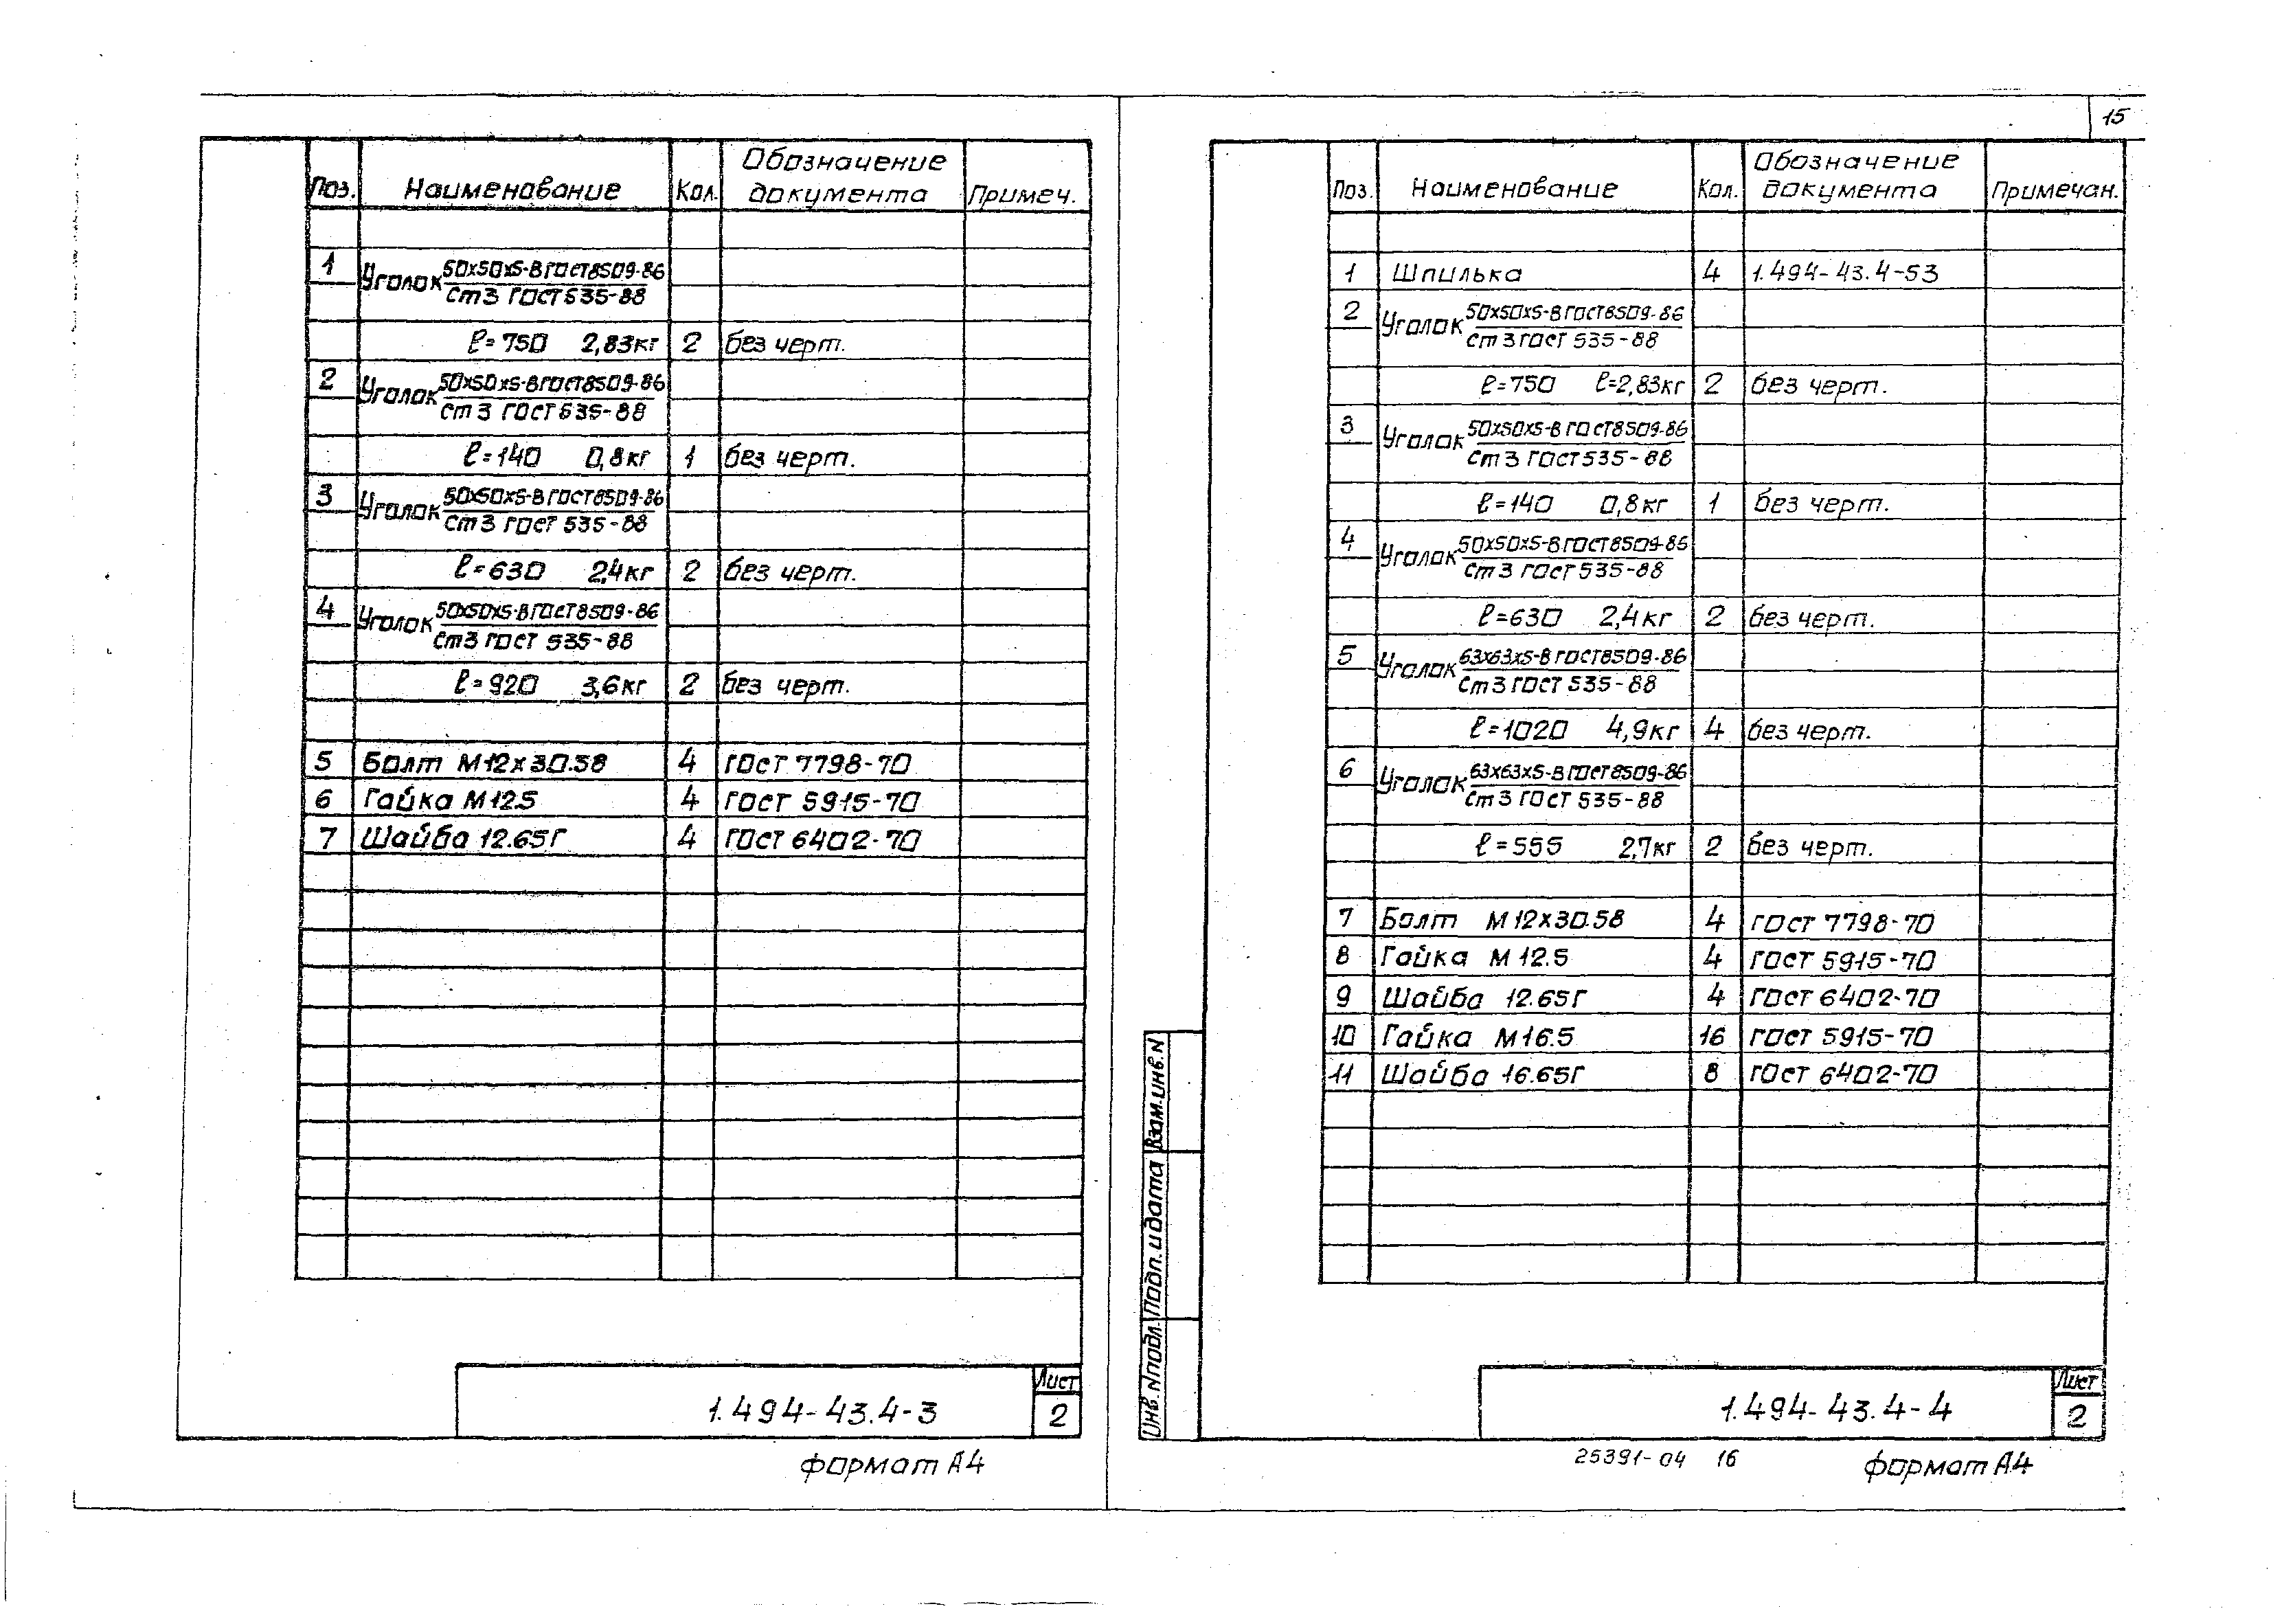 Поз. Наименование Кол. Обозначение документа Примеч.
1 Уголок 50х50х5-В ГОСТ 8509-86
Ст3 ГОСТ 535-88
ℓ=750 2,83кг 2 без черт.
2 Уголок 50х50х5-В ГОСТ 8509-86
Ст3 ГОСТ 535-88
ℓ=140 0,8кг 1 без черт.
3 Уголок 50х50х5-В ГОСТ 8509-86
Ст3 ГОСТ 535-88
ℓ=630 2,4кг 2 без черт.
4 Уголок 50х50х5-В ГОСТ 8509-86
Ст3 ГОСТ 535-88
ℓ=920 3,6кг 2 без черт.
5 Болт М12х30.58 4 ГОСТ 7798-70
6 Гайка М12.5 4 ГОСТ 5915-70
7 Шайба 12.65Г 4 ГОСТ 6402-70
1.494-43.4-3
Лист
2
формат А4
15
Поз. Наименование Кол. Обозначение документа Примечан.
1 Шпилька 4 1.494-43.4-53
2 Уголок 50х50х5-В ГОСТ 8509-86
Ст3 ГОСТ 535-88
ℓ=750 ℓ=2,83кг 2 без черт.
3 Уголок 50х50х5-В ГОСТ 8509-86
Ст3 ГОСТ 535-88
ℓ=140 0,8кг 1 без черт.
4 Уголок 50х50х5-В ГОСТ 8509-86
Ст3 ГОСТ 535-88
ℓ=630 2,4кг 2 без черт.
5 Уголок 63х63х5-В ГОСТ 8509-86
Ст3 ГОСТ 535-88
ℓ=1020 4,9кг 4 без черт.
6 Уголок 63х63х5-В ГОСТ 8509-86
Ст3 ГОСТ 535-88
ℓ=555 2,7кг 2 без черт.
7 Болт М12х30.58 4 ГОСТ 7798-70
8 Гайка М12.5 4 ГОСТ 5915-70
9 Шайба 12.65Г 4 ГОСТ 6402-70
10 Гайка М16.5 16 ГОСТ 5915-70
11 Шайба 16.65Г 8 ГОСТ 6402-70
Инв.Nподл. Подп.и дата Взам.инв.N
1.494-43.4-4
Лист
2
25391-04 16 формат А4